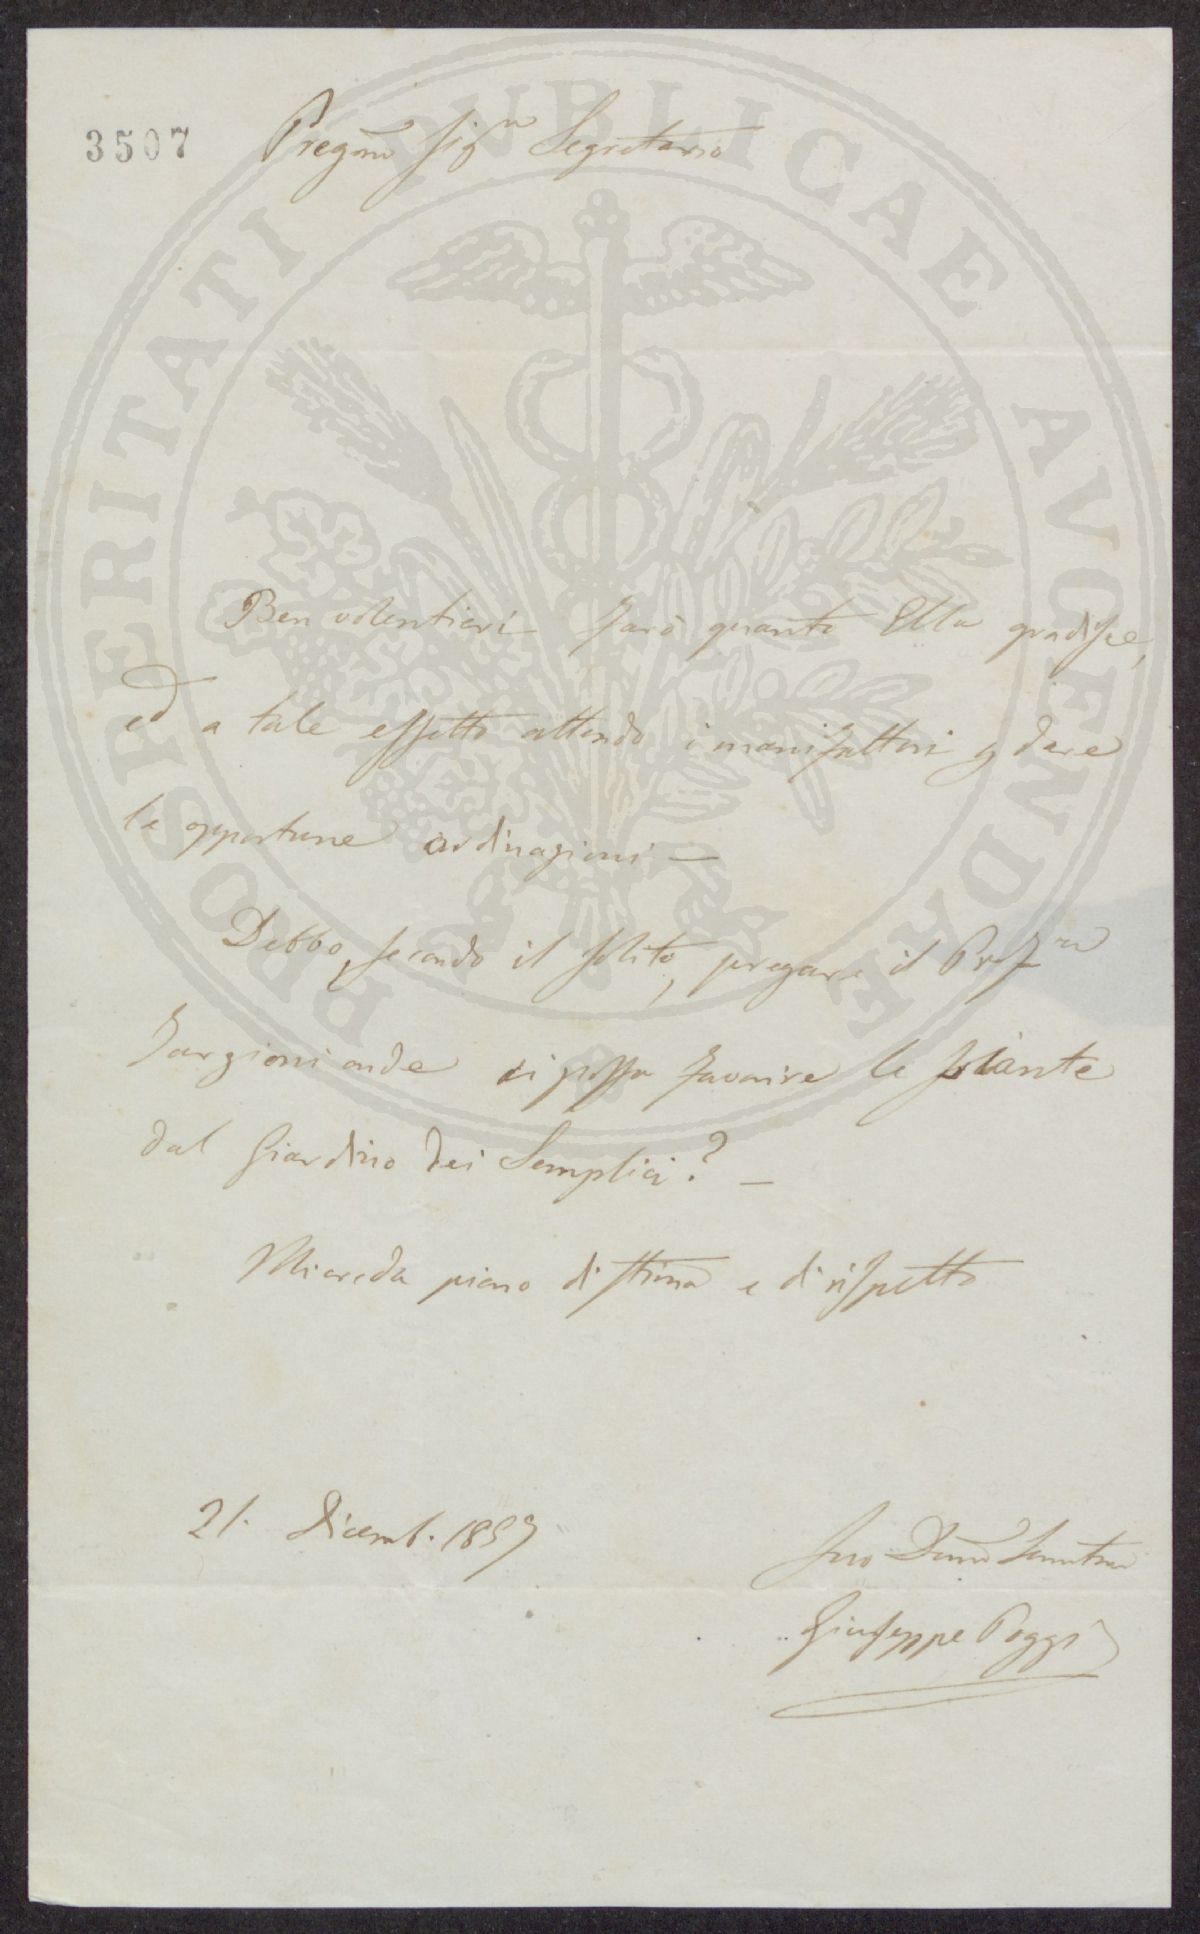 3507
Pregmo Sigre Segretario
Ben volentieri farò quanto Ella gradisce,
ed a tale effetto attendo i manifattori p dare
le opportune ordinazioni —
Debbo, secondo il solito, pregare il Profre
Targioni onde ci possa favorire le piante
dal Giardino dei Semplici? —
Mi creda pieno di stima e di rispetto
21. Dicemb. 1857
Suo Devmo Servitore
Giuseppe Poggi
PROSPERITATI PVBLICAE AVGENDAE